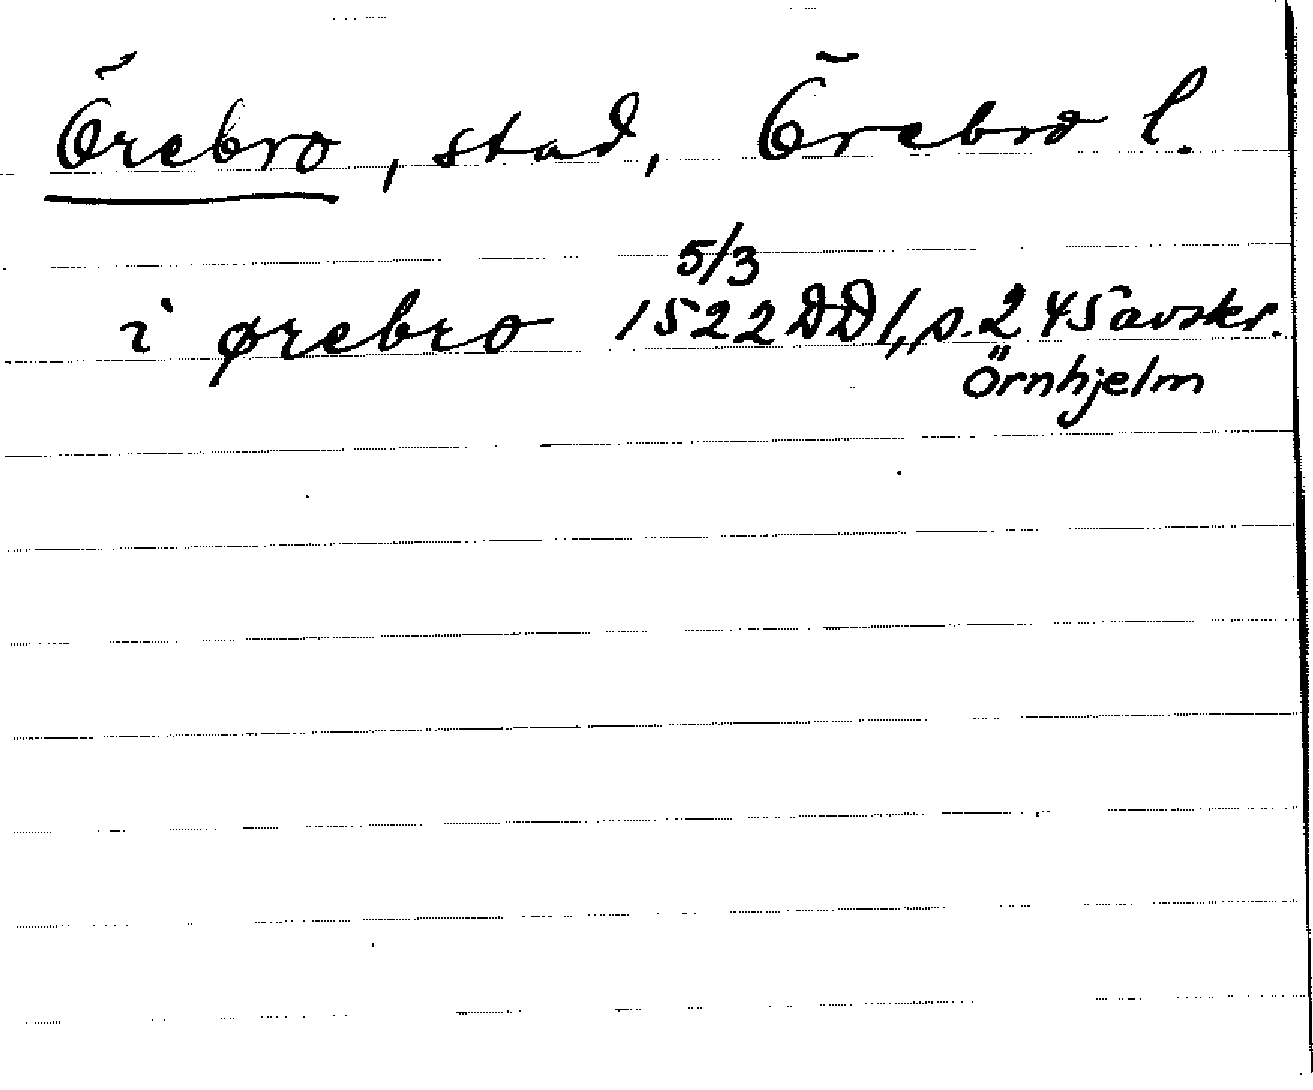 Örebro, stad, Örebro l.
5/3
i ørebro 1522 DD 1, s. 245 avskr.
Örnhjelm